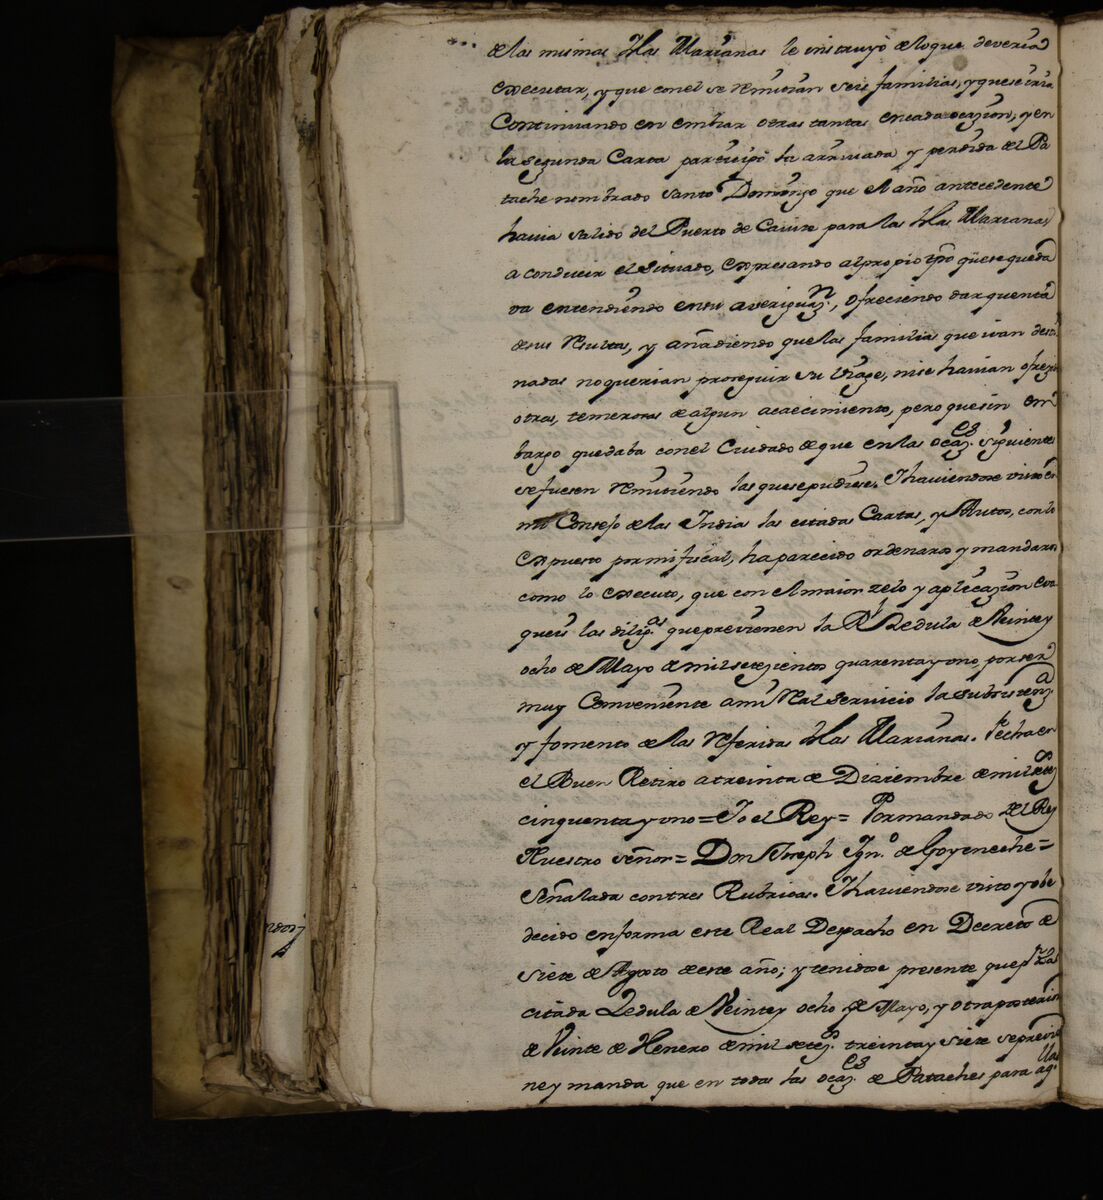 de las mismas Yslas Marianas le instruyó de lo que deveria
executar, y que con el se remitian seis familias, y que se iria
Continuando en embiar otras tantas en cada ocazion, y en
la segunda Carta participó la arrivada y perdida del Pa
tache nombrado Santo Domingo que el año antecedente
havia salido del Puerto de Cavite para las Yslas Marianas
a conducir el Situado, expresando al propio tpo que se queda
va entendiendo en su averiguaz.n, ofreciendo dar quenta
de sus resultas, y añadiendo que las familias que ivan desti
nadas no querian proseguir su Viage, ni se havian ofrezido
otras, temerosas de algun acaecimiento, pero que sin em
bargo quedaba con el Cuidado de que en las ocaz.es siguientes
se fuesen remitiendo las que se pudiese. Y haviendose visto en
mi Consejo de las Indias las citadas Cartas, y Autos, con lo
expuesto por mi fiscal, ha parecido ordenaros y mandaros
como lo executo, que con el maior zelo y aplicazion eva
queis las dilig.as que previenen la R.l Zedula de Veinte y
ocho de Mayo de mil setezientos quarenta y uno, por ser
muy Conveniente a mi Real servicio la subsistenz.a
y fomento de las referidas Yslas Marianas. Fecha en
el Buen Retiro a treinta de Diziembre de mil setez.s
cinquenta y uno = Yo el Rey = Por mandado del Rey
Nuestro Señor = Don Joseph Ign.o de Goyeneche =
Señalada con tres Rubricas. Y haviendose visto y obe
decido en forma este Real Despacho en Decreto de
siete de Agosto de este año; y tenidose presente que p.r la
citada Zedula de Veinte y ocho de Mayo, y otra posterior
de Veinte de Henero de mil setez.s treinta y siete se previe
ne y manda que en todas las ocaz.es de Pataches para aq.llas